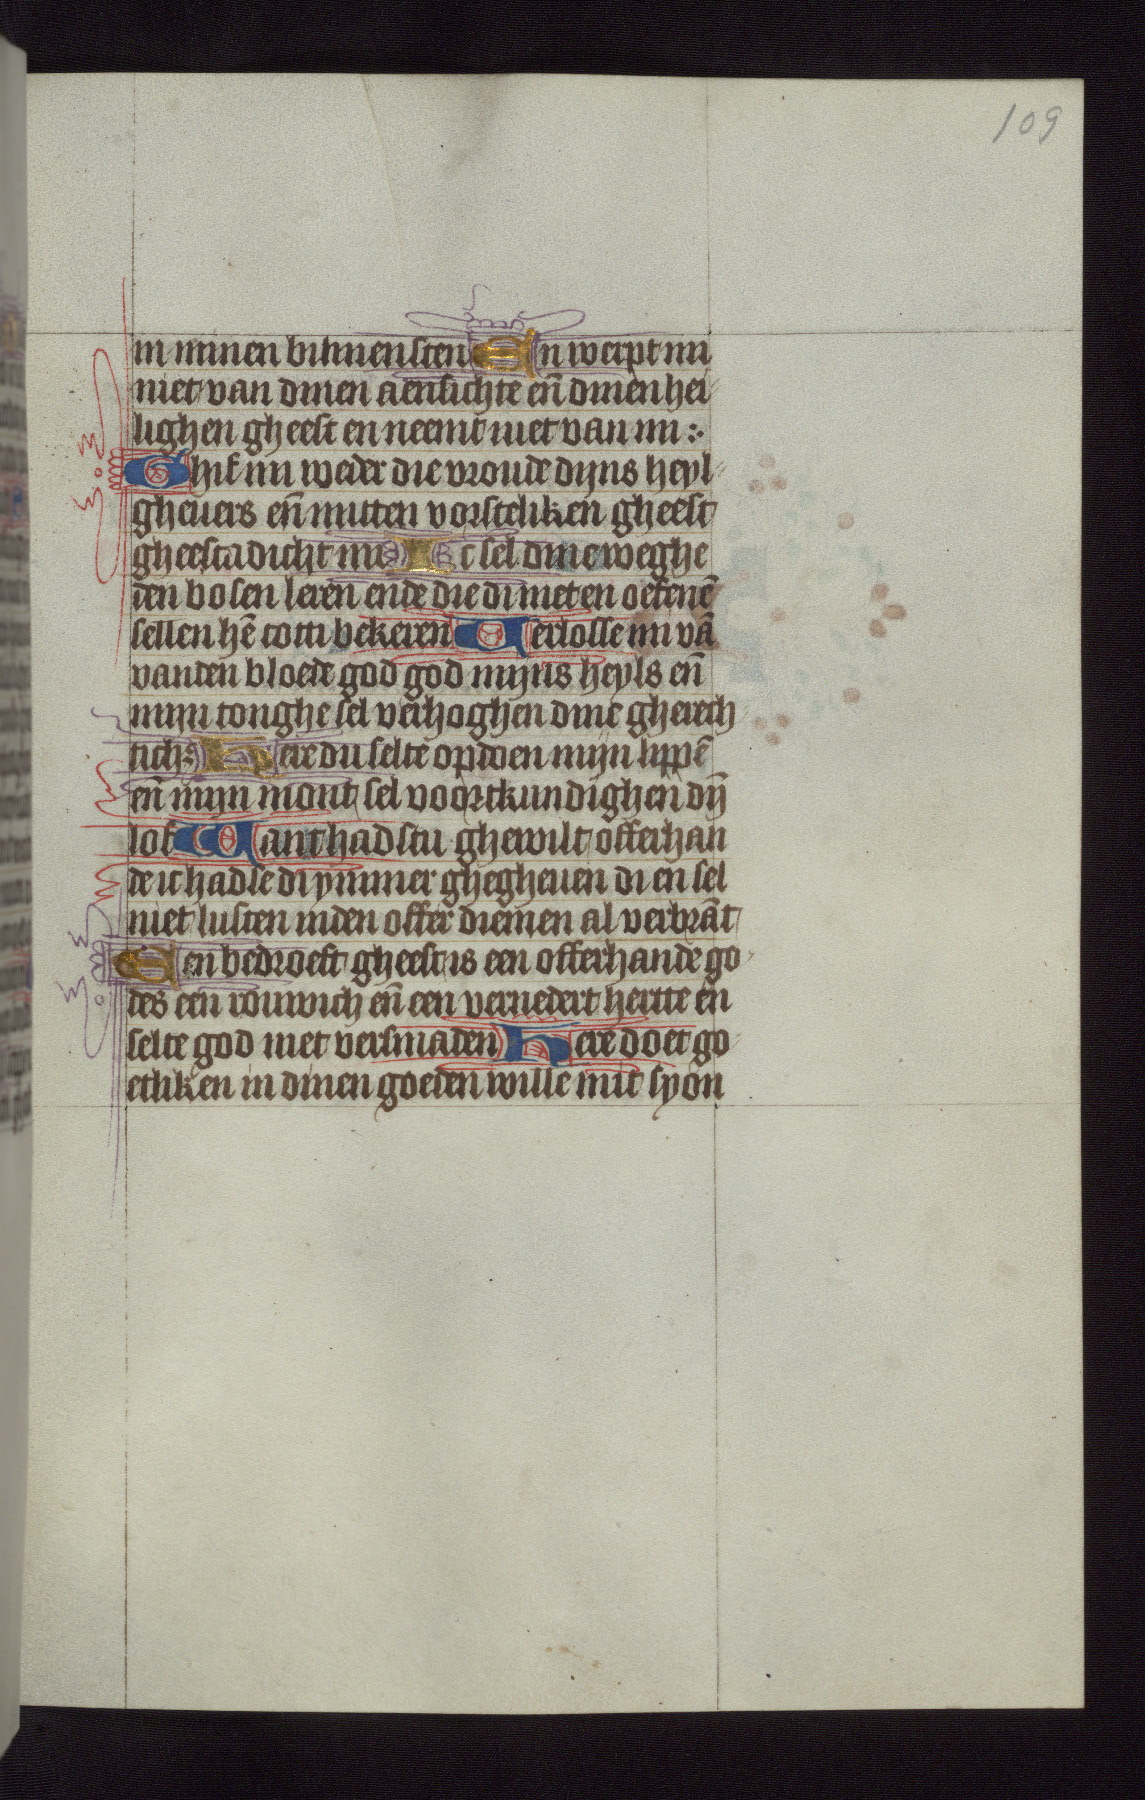 109
in minen binnensten En werpt mi
niet van dinen aensichte eñ dinen hei
lighen gheest en neemt niet van mi :·
Ghif mi weder die vroude dijns heyl
gheuers eñ mitten vorsteliken gheest
gheestadicht mi Ic sel dine weghe
den bosen leren ende die di niet en oefenē
sellen hē totti bekeren Verlosse mi vā
vanden bloede god god mijns heyls eñ
mijn tonghe sel verhoghen dine gherech
tich Here du selte opdoen mijn lippē
eñ mijn mont sel voortkundighen dij̄
lof Want hadstu ghewilt offerhan
de ic hadse di ymmer ghegheuen di en sel
niet lusten inden offer diemen al verbrāt
Een bedroeft gheest is een offerhande go
des een rouwich eñ een vernedert hertte en
selte god niet versmaden Here doet go
etliken in dinen goeden wille mit syon